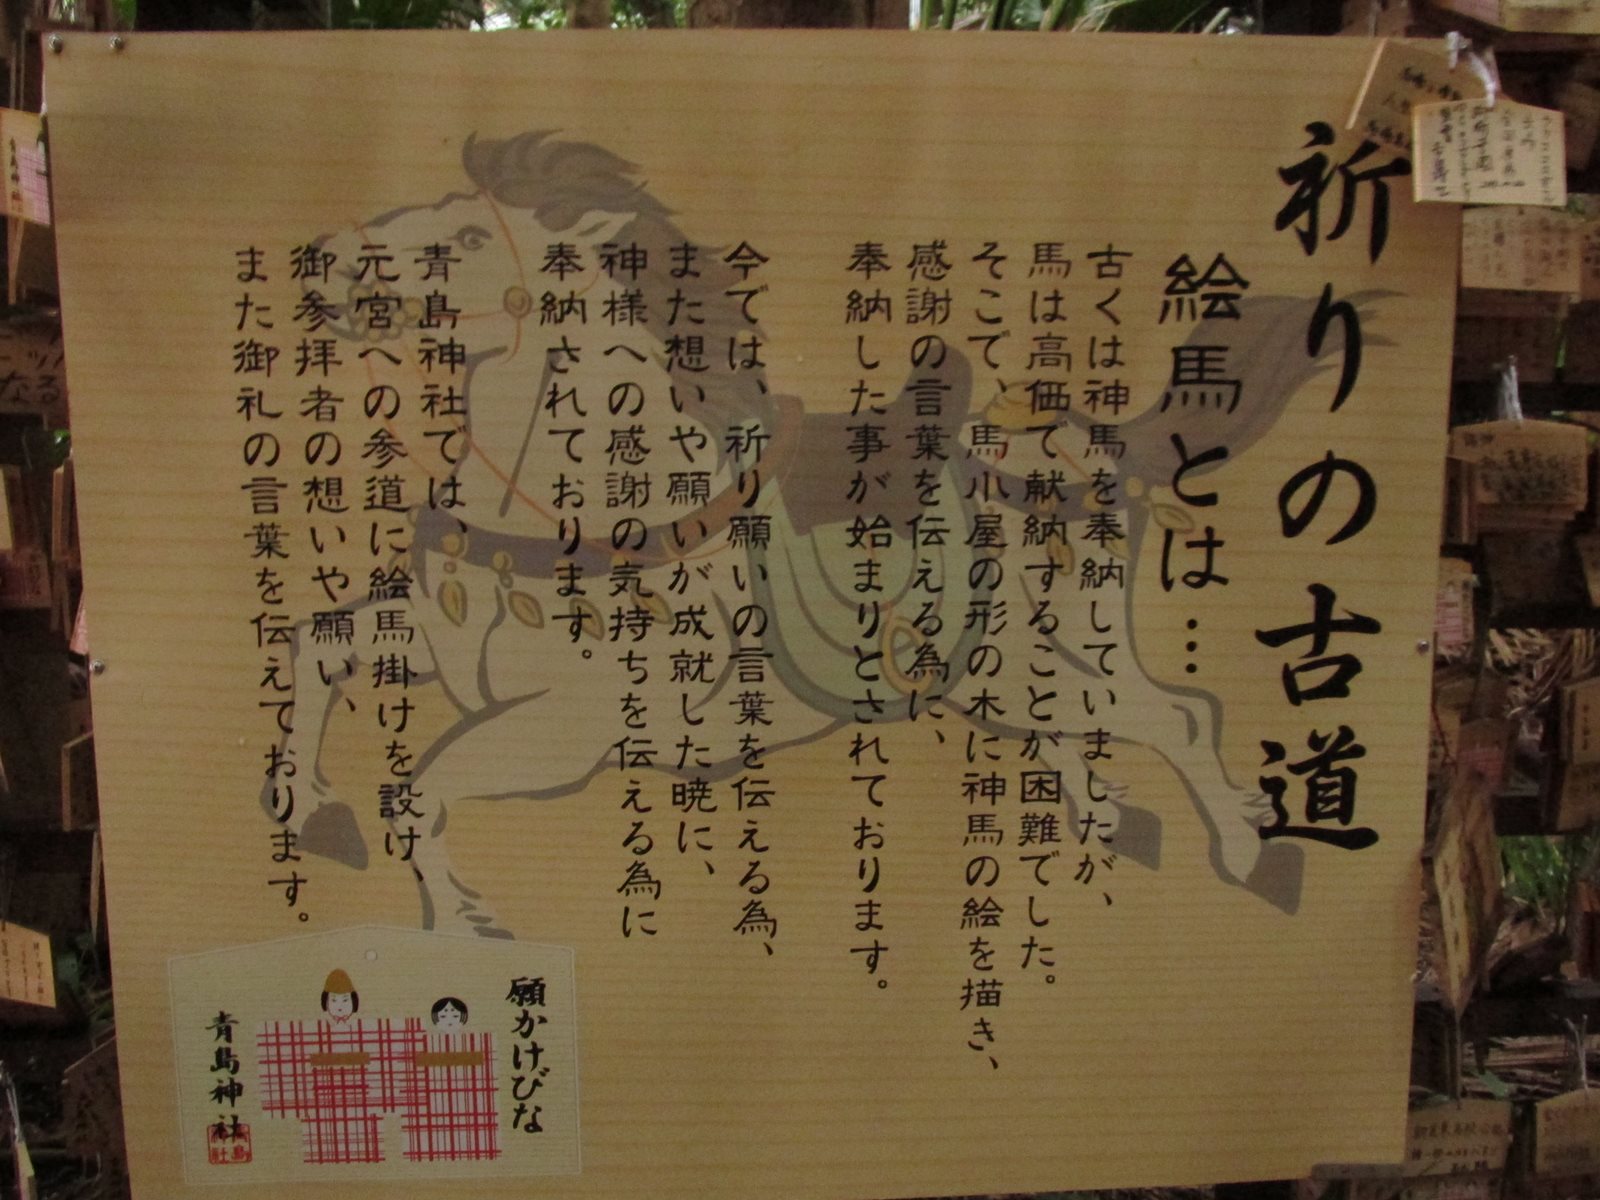 祈りの古道
絵馬とは…
古くは神馬を奉納していましたが、
馬は高価で献納することが困難でした。
そこで、馬小屋の形の木に神馬の絵を描き、
感謝の言葉を伝える為に、
奉納した事が始まりとされております。
今では、祈り願いの言葉を伝える為、
また想いや願いが成就した暁に、
神様への感謝の気持ちを伝える為に
奉納されております。
青島神社では、
元宮への参道に絵馬掛けを設け、
御参拝者の想いや願い、
また御礼の言葉を伝えております。
願かけびな
青島神社